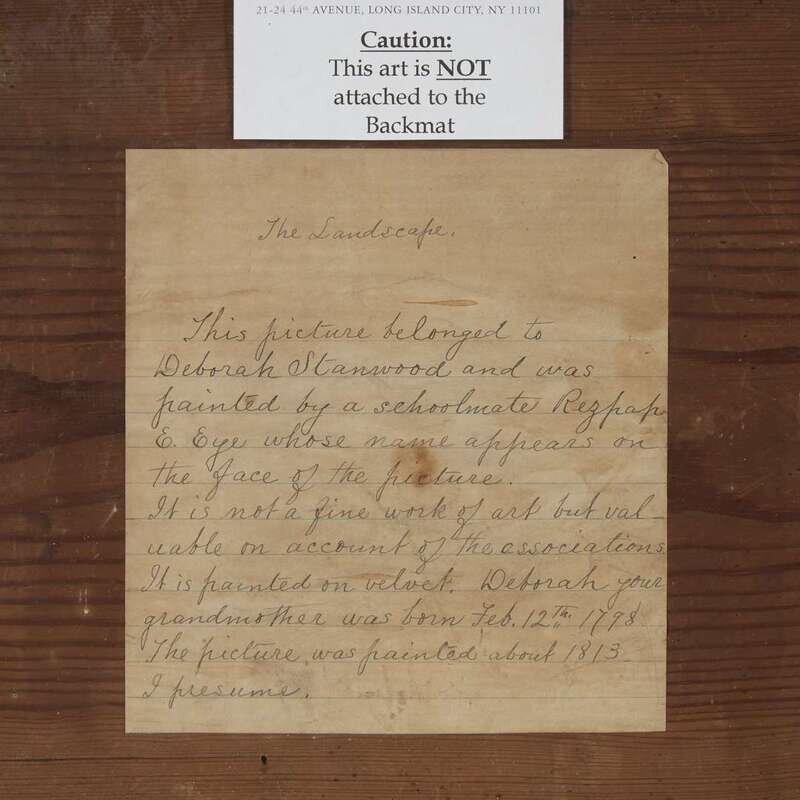 21-24 44th AVENUE, LONG ISLAND CITY, NY 11101
Caution:
This art is NOT
attached to the
Backmat
The Landscape.
This picture belonged to
Deborah Stanwood and was
painted by a schoolmate Rezpap
E. Eye whose name appears on
the face of the picture.
It is not a fine work of art but val-
uable on account of the associations
It is painted on velvet. Deborah your
grandmother was born Feb. 12th. 1798
The picture was painted about 1813
I presume.